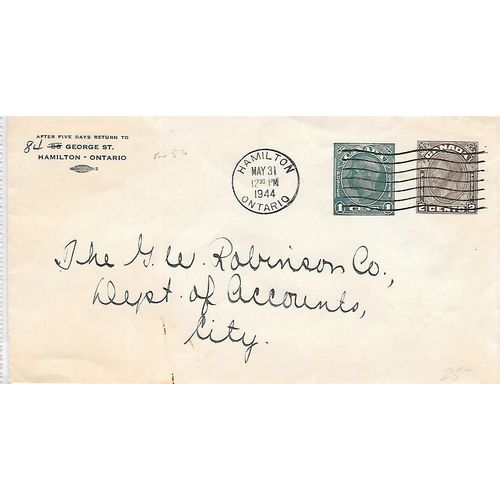 AFTER FIVE DAYS RETURN TO
84 58 GEORGE ST.
HAMILTON · ONTARIO
HAMILTON
MAY 31
12 30 PM
1944
ONTARIO
CANADA
1 CENT 1
CANADA
2 CENTS 2
The G. W. Robinson Co.,
Dept. of Accounts,
City.
25-